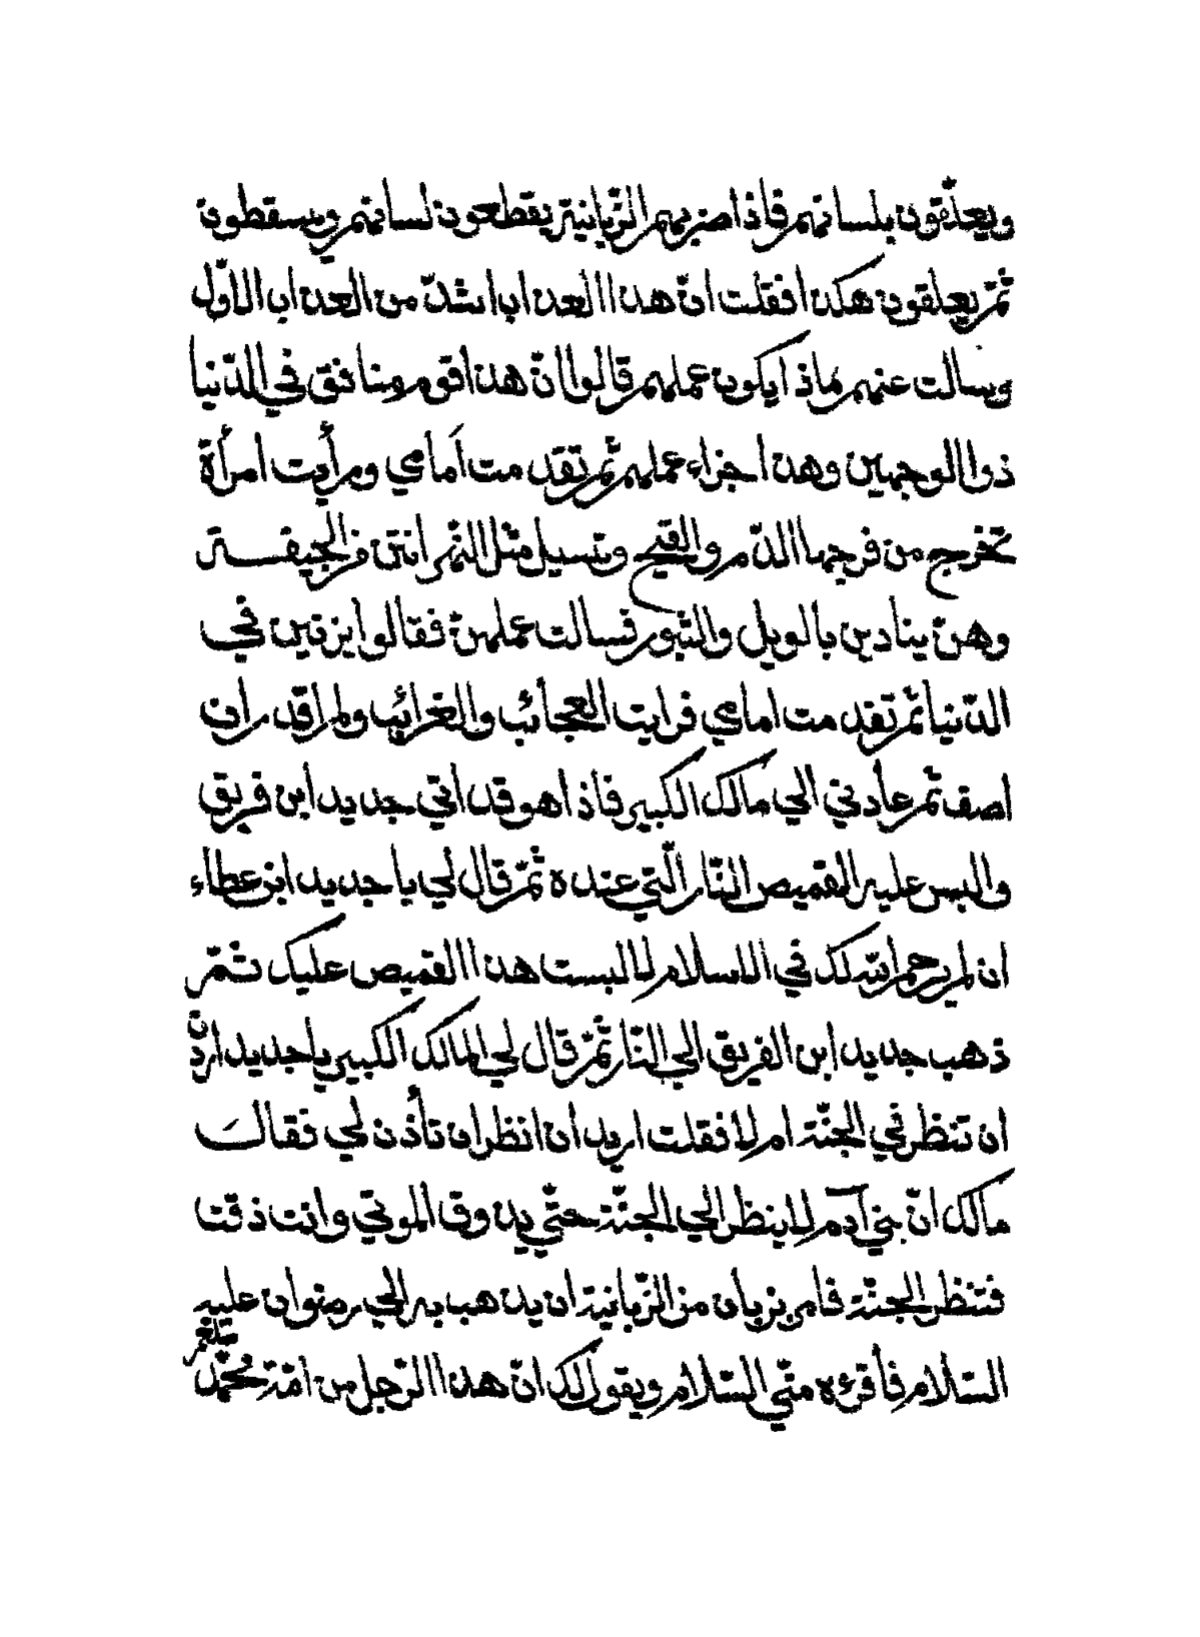 ويعلّقون بلسانهم فاذا ضربهم الزّبانية يقطعون لسانهم ويسقطون
ثمّ يعلقون هكذا فقلت انّ هذا العذاب اشدّ من العذاب الاوّل
وسالت عنهم بماذا يكون عملهم قالوا انّ هذا قوم منافق في الدّنيا
ذوا الوجهين وهذا جزاء عملهم ثمّ تقدمت أمامي ورأيت امرأة
تخرج من فرجها الدّم والقيح وتسيل مثل النّهر انتن من الجيفة
وهنّ ينادين بالويل والثبور فسالت عملهنّ فقالوا يزنين في
الدّنيا ثمّ تقدمت امامي فرايت العجائب والغرائب ولم اقدر ان
اصف ثمّ عادني الي مالك الكبير فاذا هو قد اتي جديد ابن فريق
والبس عليه القميص النّار الّتي عنده ثمّ قال لي يا جديد ابن عطاء
ان لم يرحم الله لك في الاسلام لما لبست هذا القميص عليك ثمّ
ذهب جديد ابن الفريق الي النّار ثمّ قال لي المالك الكبير يا جديد اردتّ
ان تنظر في الجنّة ام لا فقلت اريد ان انظر ان تأذن لي فقال
مالك انّ بني آدم لا ينظر الي الجنّة حتّي يذوق الموتي وانت ذقت
فتنظر الجنّة فامر بزبان من الزّبانية ان يذهب به الي رضوان عليه
السّلام فأقرءه منّي السّلام ويقول لك انّ هذا الرّجل من امّة محمّد صلعم